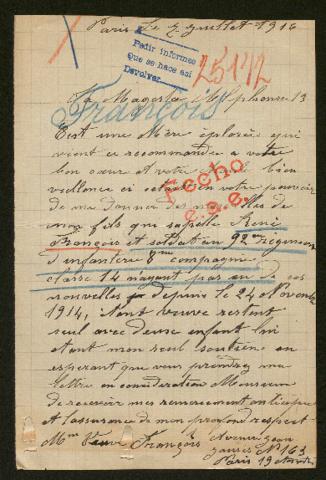 Paris le 2 Juillet 1916
Pedir informes
Que se hace así
Devolver
25172
Sa Magesté Alphonse 13
François
C'est une Mère éplorée qui
vient ce recommander a votre
bon cœur et votre bien
veillance ci cela est en votre pouvoir
de me donner des nouvelles de
mon fils qui sapelle René
François et soldat au 92em Régiment
d'infanterie 8me compagnie
classe 14 n'ayant pas eu de ces
nouvelles depuis le 24 Novembre
1914, étant veuve restant
seul avec deux enfant lui
étant mon seul soutien en
esperant que vous prendrez ma
lettre en considération Monsieur
de recevoir mes remerciement anticipé
et l'assurance de mon profond respect
Hecho
e.g.e.
Mme Veuve François Avenue Jean
Jaurès No 163
Paris 19